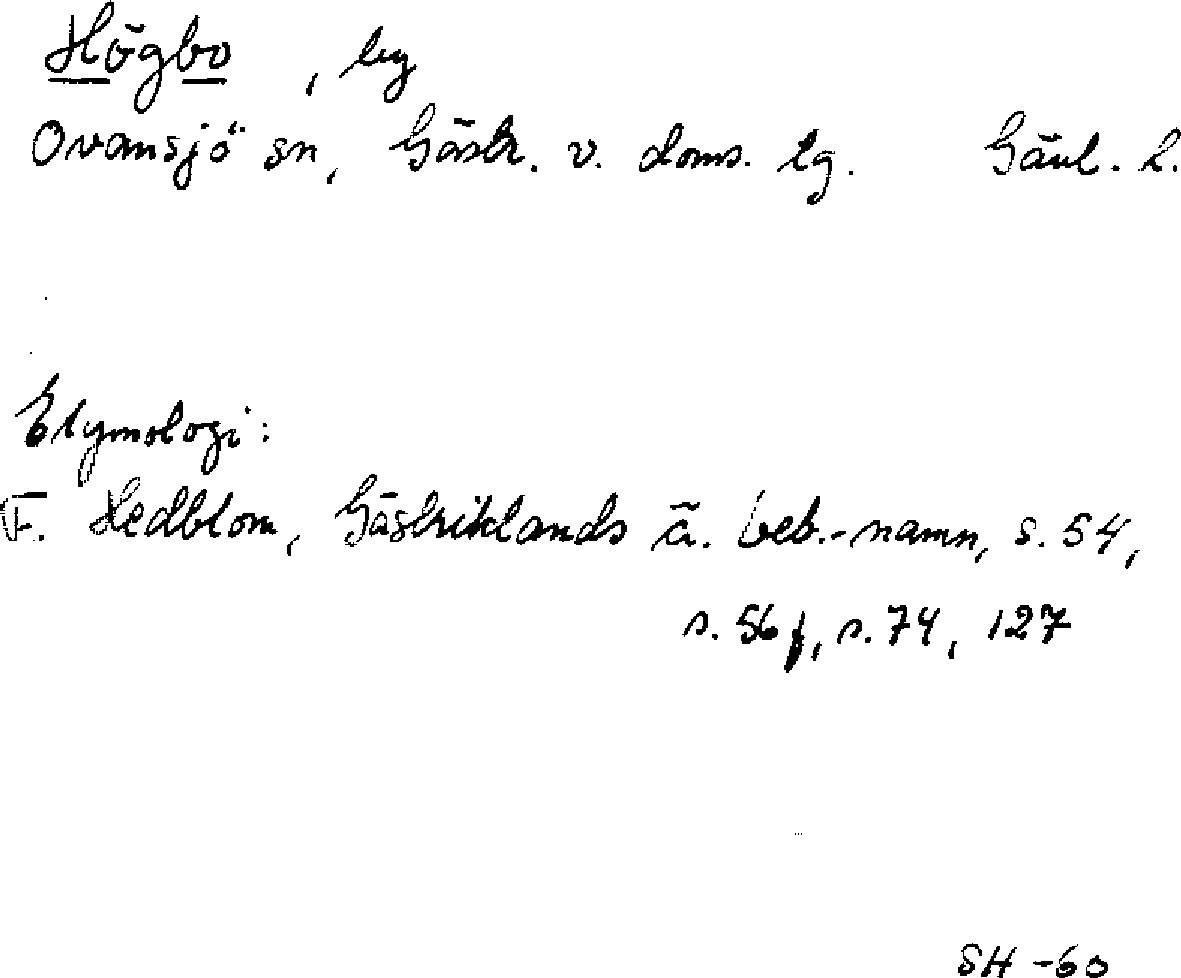 Högbo, by
Ovansjö sn, Gästr. v. doms. tg. Gävl. l.
Etymologi:
F. Hedblom, Gästriklands ä. beb.-namn, s. 54,
s. 56 f, s. 74, 127
SH -60